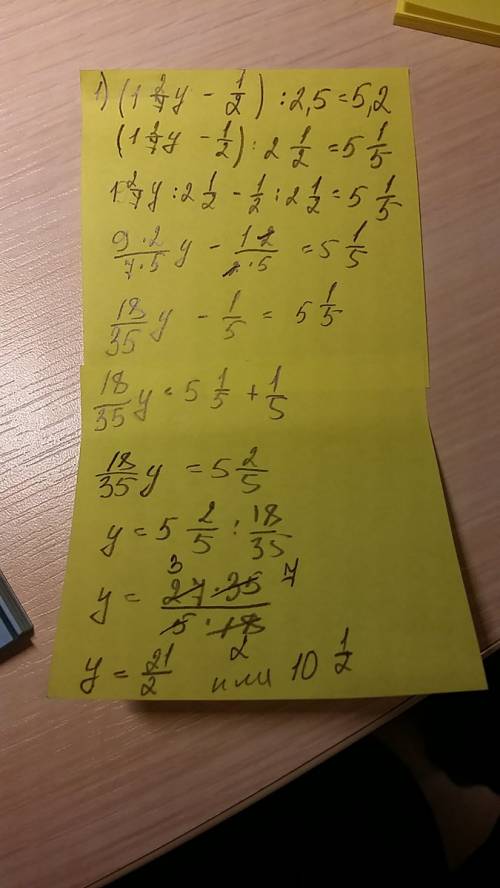 1) (1 2/7 y - 1/2) : 2,5 = 5,2
(1 2/7 y - 1/2) : 2 1/2 = 5 1/5
1 2/7 y : 2 1/2 - 1/2 : 2 1/2 = 5 1/5
9·2/7·5 y - 1·2/2·5 = 5 1/5
18/35 y - 1/5 = 5 1/5
18/35 y = 5 1/5 + 1/5
18/35 y = 5 2/5
y = 5 2/5 : 18/35
y = 27·35/5·18
3 7
2
y = 21/2 или 10 1/2